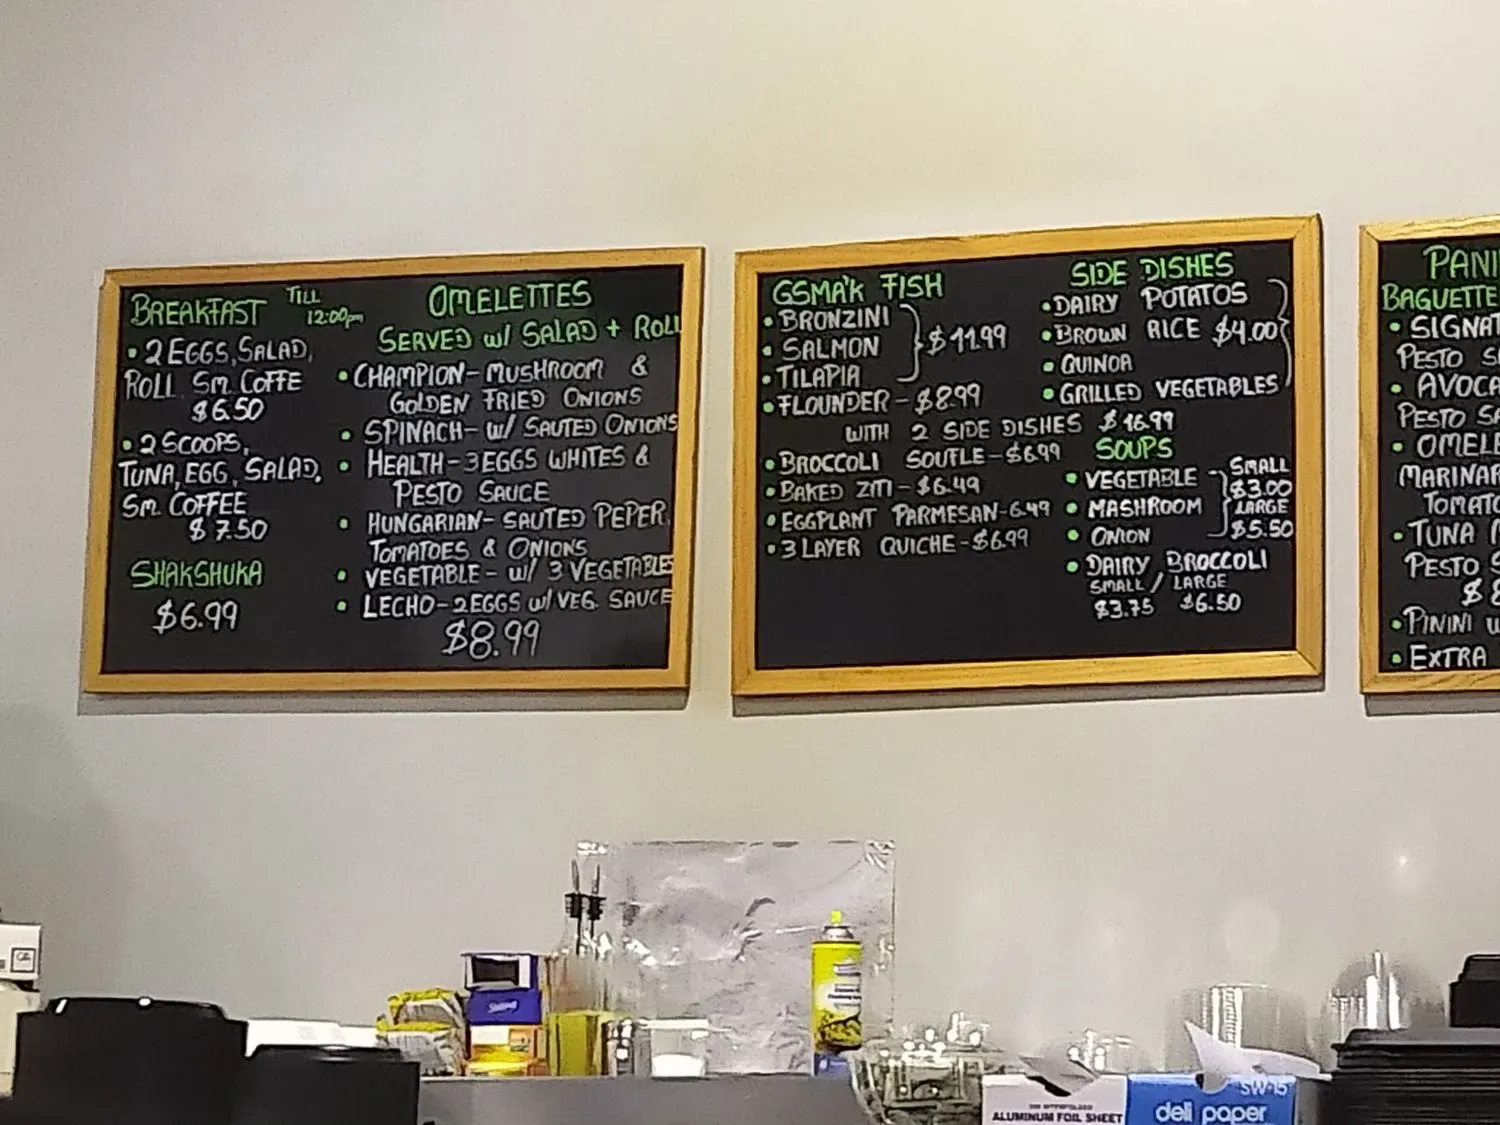 BREAKFAST TILL 12:00pm
• 2 EGGS, SALAD,
ROLL SM. COFFE
$6.50
• 2 SCOOPS,
TUNA, EGG, SALAD,
SM. COFFEE
$7.50
SHAKSHUKA
$6.99
OMELETTES
SERVED w/ SALAD + ROLL
• CHAMPION - MUSHROOM &
GOLDEN FRIED ONIONS
• SPINACH - w/ SAUTED ONIONS
• HEALTH - 3 EGGS WHITES &
PESTO SAUCE
• HUNGARIAN - SAUTED PEPER,
TOMATOES & ONIONS
• VEGETABLE - w/ 3 VEGETABLES
• LECHO - 2 EGGS w/ VEG. SAUCE
$8.99
GSMA'K FISH
• BRONZINI
• SALMON
• TILAPIA
$11.99
• FLOUNDER - $8.99
WITH 2 SIDE DISHES $16.99
• BROCCOLI SOUFLE - $6.99
• BAKED ZITI - $6.49
• EGGPLANT PARMESAN - 6.49
• 3 LAYER QUICHE - $6.99
SIDE DISHES
• DAIRY POTATOS
• BROWN RICE $4.00
• QUINOA
• GRILLED VEGETABLES
SOUPS
• VEGETABLE
• MASHROOM
• ONION
SMALL
$3.00
LARGE
$5.50
• DAIRY BROCCOLI
SMALL / LARGE
$3.75 $6.50
PANI
BAGUETTE
• SIGNAT
PESTO S
• AVOCA
PESTO SA
• OMELE
MARINAR
TOMATO
• TUNA
PESTO S
$8
• PININI w
• EXTRA
ALUMINUM FOIL SHEET
SW-15
deli paper